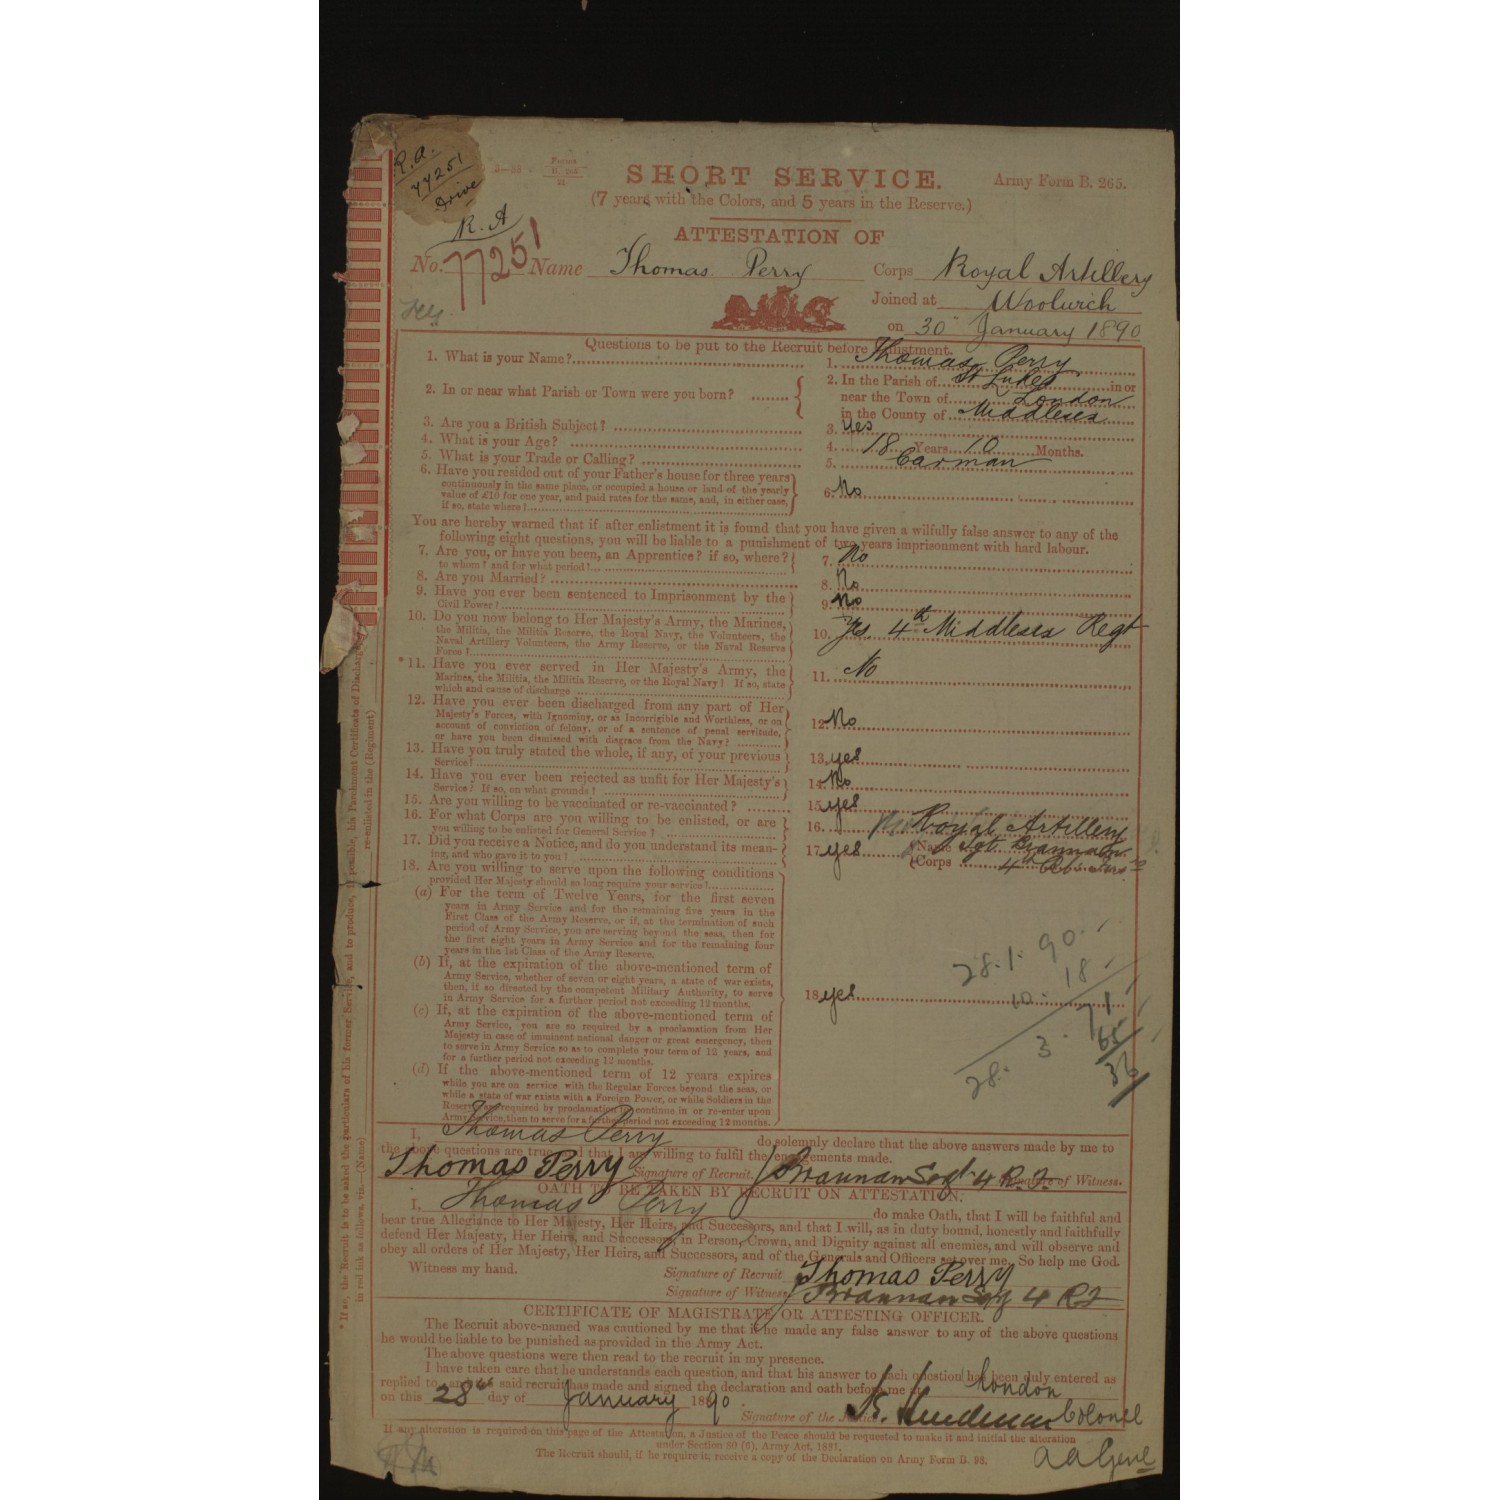 R.A.
77251
Drive
R.A
Army Form B. 265.
SHORT SERVICE.
(7 years with the Colors, and 5 years in the Reserve.)
ATTESTATION OF
No. 77251 Name Thomas Perry Corps Royal Artillery
Joined at Woolwich
on 30th January 1890
Questions to be put to the Recruit before Enlistment.
1. What is your Name? 1. Thomas Perry
2. In or near what Parish or Town were you born? 2. In the Parish of St Lukes in or
near the Town of London
in the County of Middlesex
3. Are you a British Subject? 3. Yes
4. What is your Age? 4. 18 Years 10 Months.
5. What is your Trade or Calling? 5. Carman
6. Have you resided out of your Father's house for three years
continuously in the same place, or occupied a house or land of the yearly
value of £10 for one year, and paid rates for the same, and, in either case,
if so, state where? 6. No
You are hereby warned that if after enlistment it is found that you have given a wilfully false answer to any of the
following eight questions, you will be liable to a punishment of two years imprisonment with hard labour.
7. Are you, or have you been, an Apprentice? if so, where?
to whom? and for what period? 7. No
8. Are you Married? 8. No
9. Have you ever been sentenced to Imprisonment by the
Civil Power? 9. No
10. Do you now belong to Her Majesty's Army, the Marines,
the Militia, the Militia Reserve, the Royal Navy, the Volunteers, the
Naval Artillery Volunteers, the Army Reserve, or the Naval Reserve
Force? 10. Yes 4th Middlesex Regt
*11. Have you ever served in Her Majesty's Army, the
Marines, the Militia, the Militia Reserve, or the Royal Navy? If so, state
which and cause of discharge 11. No
12. Have you ever been discharged from any part of Her
Majesty's Forces, with Ignominy, or as Incorrigible and Worthless, or on
account of conviction of felony, or of a sentence of penal servitude,
or have you been dismissed with disgrace from the Navy? 12. No
13. Have you truly stated the whole, if any, of your previous
Service? 13. yes
14. Have you ever been rejected as unfit for Her Majesty's
Service? If so, on what grounds? 14. No
15. Are you willing to be vaccinated or re-vaccinated? 15. yes
16. For what Corps are you willing to be enlisted, or are
you willing to be enlisted for General Service? 16. Royal Artillery
17. Did you receive a Notice, and do you understand its mean-
ing, and who gave it to you? 17. yes {Name Sgt Brannan
{Corps 4th
18. Are you willing to serve upon the following conditions
provided Her Majesty should so long require your service?
(a) For the term of Twelve Years, for the first seven
years in Army Service and for the remaining five years in the
First Class of the Army Reserve, or if, at the termination of such
period of Army Service, you are serving beyond the seas, then for
the first eight years in Army Service and for the remaining four
years in the 1st Class of the Army Reserve.
(b) If, at the expiration of the above-mentioned term of
Army Service, whether of seven or eight years, a state of war exists,
then, if so directed by the competent Military Authority, to serve
in Army Service for a further period not exceeding 12 months. 18. yes
(c) If, at the expiration of the above-mentioned term of
Army Service, you are so required by a proclamation from Her
Majesty in case of imminent national danger or great emergency, then
to serve in Army Service so as to complete your term of 12 years, and
for a further period not exceeding 12 months.
(d) If the above-mentioned term of 12 years expires
while you are on service with the Regular Forces beyond the seas, or
while a state of war exists with a Foreign Power, or while Soldiers in the
Reserve are required by proclamation to continue in or re-enter upon
Army Service, then to serve for a further period not exceeding 12 months.
28.1.90
10.18
28.3.71
65
36
I, Thomas Perry do solemnly declare that the above answers made by me to
the above questions are true, and that I am willing to fulfil the engagements made.
Thomas Perry Signature of Recruit. J Brannan Sergt 4 R.F. Signature of Witness.
OATH TO BE TAKEN BY RECRUIT ON ATTESTATION.
I, Thomas Perry do make Oath, that I will be faithful and
bear true Allegiance to Her Majesty, Her Heirs, and Successors, and that I will, as in duty bound, honestly and faithfully
defend Her Majesty, Her Heirs, and Successors, in Person, Crown, and Dignity against all enemies, and will observe and
obey all orders of Her Majesty, Her Heirs, and Successors, and of the Generals and Officers set over me. So help me God.
Witness my hand. Signature of Recruit Thomas Perry
Signature of Witness J Brannan Sergt 4 RF
CERTIFICATE OF MAGISTRATE OR ATTESTING OFFICER.
The Recruit above-named was cautioned by me that if he made any false answer to any of the above questions
he would be liable to be punished as provided in the Army Act.
The above questions were then read to the recruit in my presence.
I have taken care that he understands each question, and that his answer to each question has been duly entered as
replied to, and the said recruit has made and signed the declaration and oath before me at London
on this 28th day of January 1890.
Signature of the Justice Colonel
If any alteration is required on this page of the Attestation, a Justice of the Peace should be requested to make it and initial the alteration
under Section 80 (6), Army Act, 1881.
The Recruit should, if he require it, receive a copy of the Declaration on Army Form B. 98.
* If so, the Recruit is to be asked the particulars of his former Service, and to produce, if possible, his Parchment Certificate of Discharge
in red ink as follows, viz.—(Name) re-enlisted in the (Regiment)